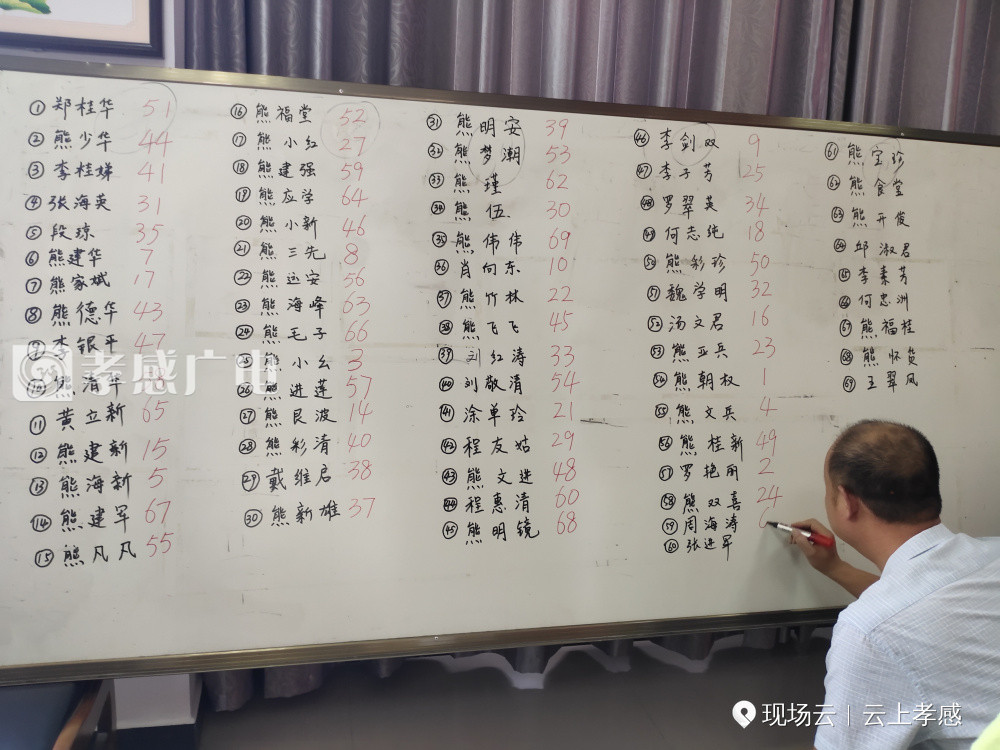 ① 郑桂华 51
② 熊少华 44
③ 李桂娣 41
④ 张海英 31
⑤ 段琼 35
⑥ 熊建华 7
⑦ 熊家斌 17
⑧ 熊德华 43
⑨ 李银平 47
⑩ 熊清华
⑪ 黄立新 65
⑫ 熊建新 15
⑬ 熊海新 5
⑭ 熊建军 67
⑮ 熊凡凡 55
⑯ 熊福堂 52
⑰ 熊小红 27
⑱ 熊建强 59
⑲ 熊应学 64
⑳ 熊小新 46
㉑ 熊三先 8
㉒ 熊远安 56
㉓ 熊海峰 63
㉔ 熊毛子 66
㉕ 熊小幺 3
㉖ 熊进莲 57
㉗ 熊艮波 14
㉘ 熊彩清 40
㉙ 戴维启 38
㉚ 熊新雄 37
㉛ 熊明安 39
㉜ 熊梦潮 53
㉝ 熊瑾 62
㉞ 熊伍 30
㉟ 熊伟伟 69
㊱ 肖向东 10
㊲ 熊竹林 22
㊳ 熊飞飞 45
㊴ 刘红涛 33
㊵ 刘敬清 54
㊶ 涂单玲 21
㊷ 程友姑 29
㊸ 熊文进 48
㊹ 程惠清 60
㊺ 熊明镜 68
㊻ 李剑双 9
㊼ 李子芳 25
㊽ 罗翠英 34
㊾ 何志纯 18
㊿ 熊彩珍 50
51 魏学明 32
52 汤文君 16
53 熊亚兵 23
54 熊朝权 1
55 熊文兵 4
56 熊桂新 49
57 罗艳丽 2
58 熊双喜 24
59 周海涛 6
60 张进军
61 熊宝珍
62 熊食堂
63 熊开俊
64 邱淑君
65 李素芳
66 何忠洲
67 熊福桂
68 熊怀
69 王翠凤
孝感广电
现场云|云上孝感